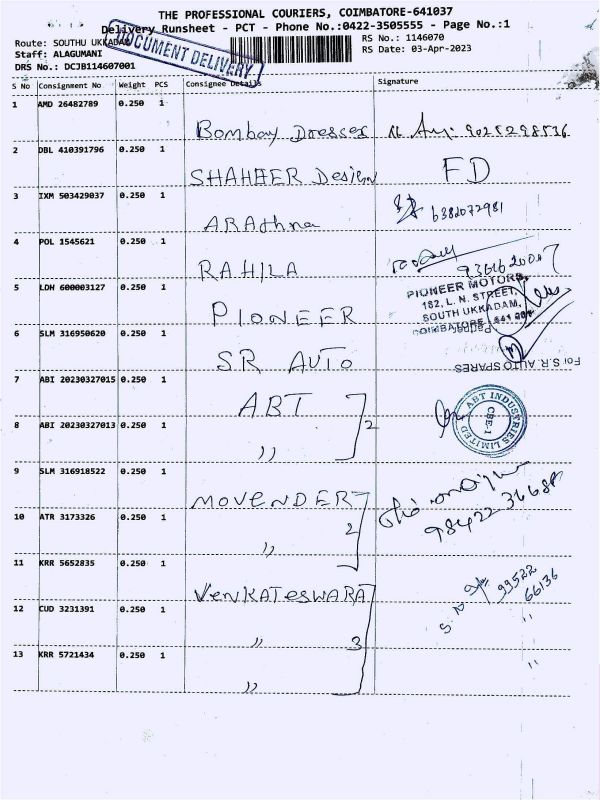 THE PROFESSIONAL COURIERS, COIMBATORE-641037
Delivery Runsheet - PCT - Phone No.:0422-3505555 - Page No.:1
Route: SOUTHU UKKADAM
DOCUMENT DELIVERY
RS No.: 1146070
Staff: ALAGUMANI
RS Date: 03-Apr-2023
DRS No.: DCJB114607001
S No Consignment No Weight PCS Consignee Details Signature
1 AMD 26482789 0.250 1
Bombay Dresses 9025298536
2 DBL 410391796 0.250 1
SHAHEER Design FD
3 IXM 503429037 0.250 1
ARAthna 6382072981
4 POL 1545621 0.250 1
RAHILA
PIONEER MOTORS,
182, L. N. STREET,
SOUTH UKKADAM,
COIMBATORE
5 LOH 600003127 0.250 1
PIONEER
6 SLM 316950620 0.250 1
SR AUTO
For S.R. AUTO SPARES
7 ABI 20230327015 0.250 1
ABT
2
8 ABI 20230327013 0.250 1
,,
ABT INDUSTRIES LIMITED
CBE-1
9 SLM 316918522 0.250 1
MOVENDER
10 ATR 3173326 0.250 1
2
,,
11 KRR 5652835 0.250 1
VENKATESWARA 99522
66136
12 CUD 3231391 0.250 1
,, 3 ,,
13 KRR 5721434 0.250 1
,, ,,